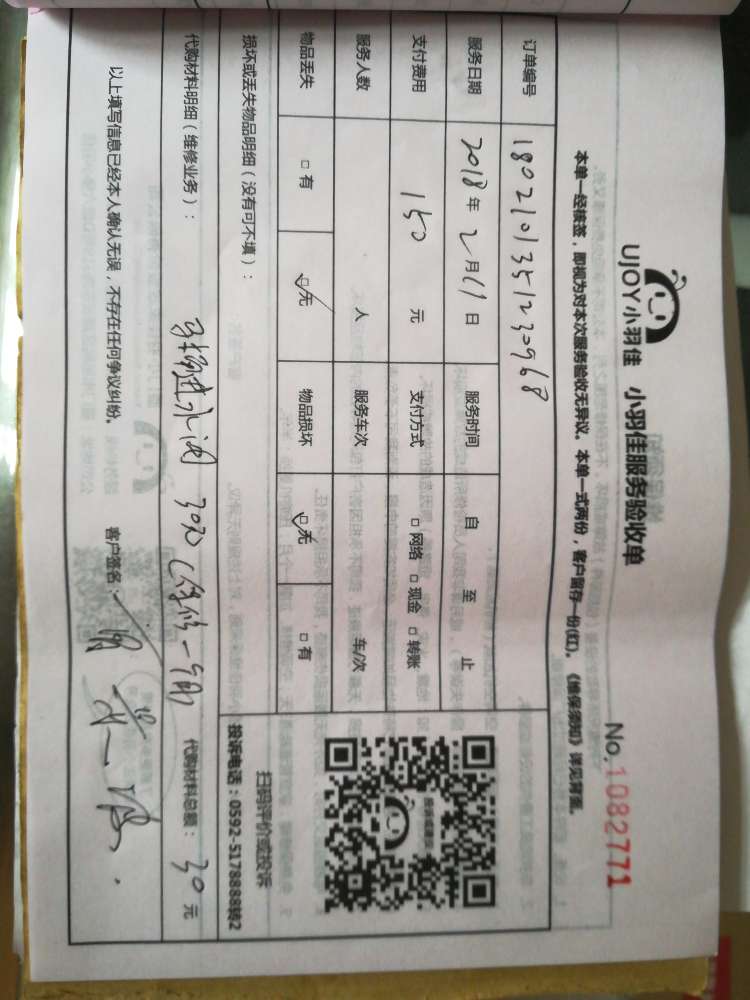 UJOY小羽佳 小羽佳服务验收单
No.1082771
本单一经核签,即视为对本次服务验收无异议。本单一式两份,客户留存一份(红)。《维保须知》详见背面。
订单编号 1802101351230968
服务日期 2018年2月11日 服务时间 自 至 止
支付费用 150 元 支付方式 □网络 □现金 □转账
服务人数 人 服务车次 车/次
物品丢失 □有 ☑无 物品损坏 ☑无 □有
损坏或丢失物品明细(没有可不填):
投诉或建议
扫码评价或投诉
投诉电话:0592-5178888转2
代购材料明细(维修业务): 进水阀 30元(保修一 代购材料总额: 30元
以上填写信息已经本人确认无误,不存在任何争议纠纷。 客户签名: